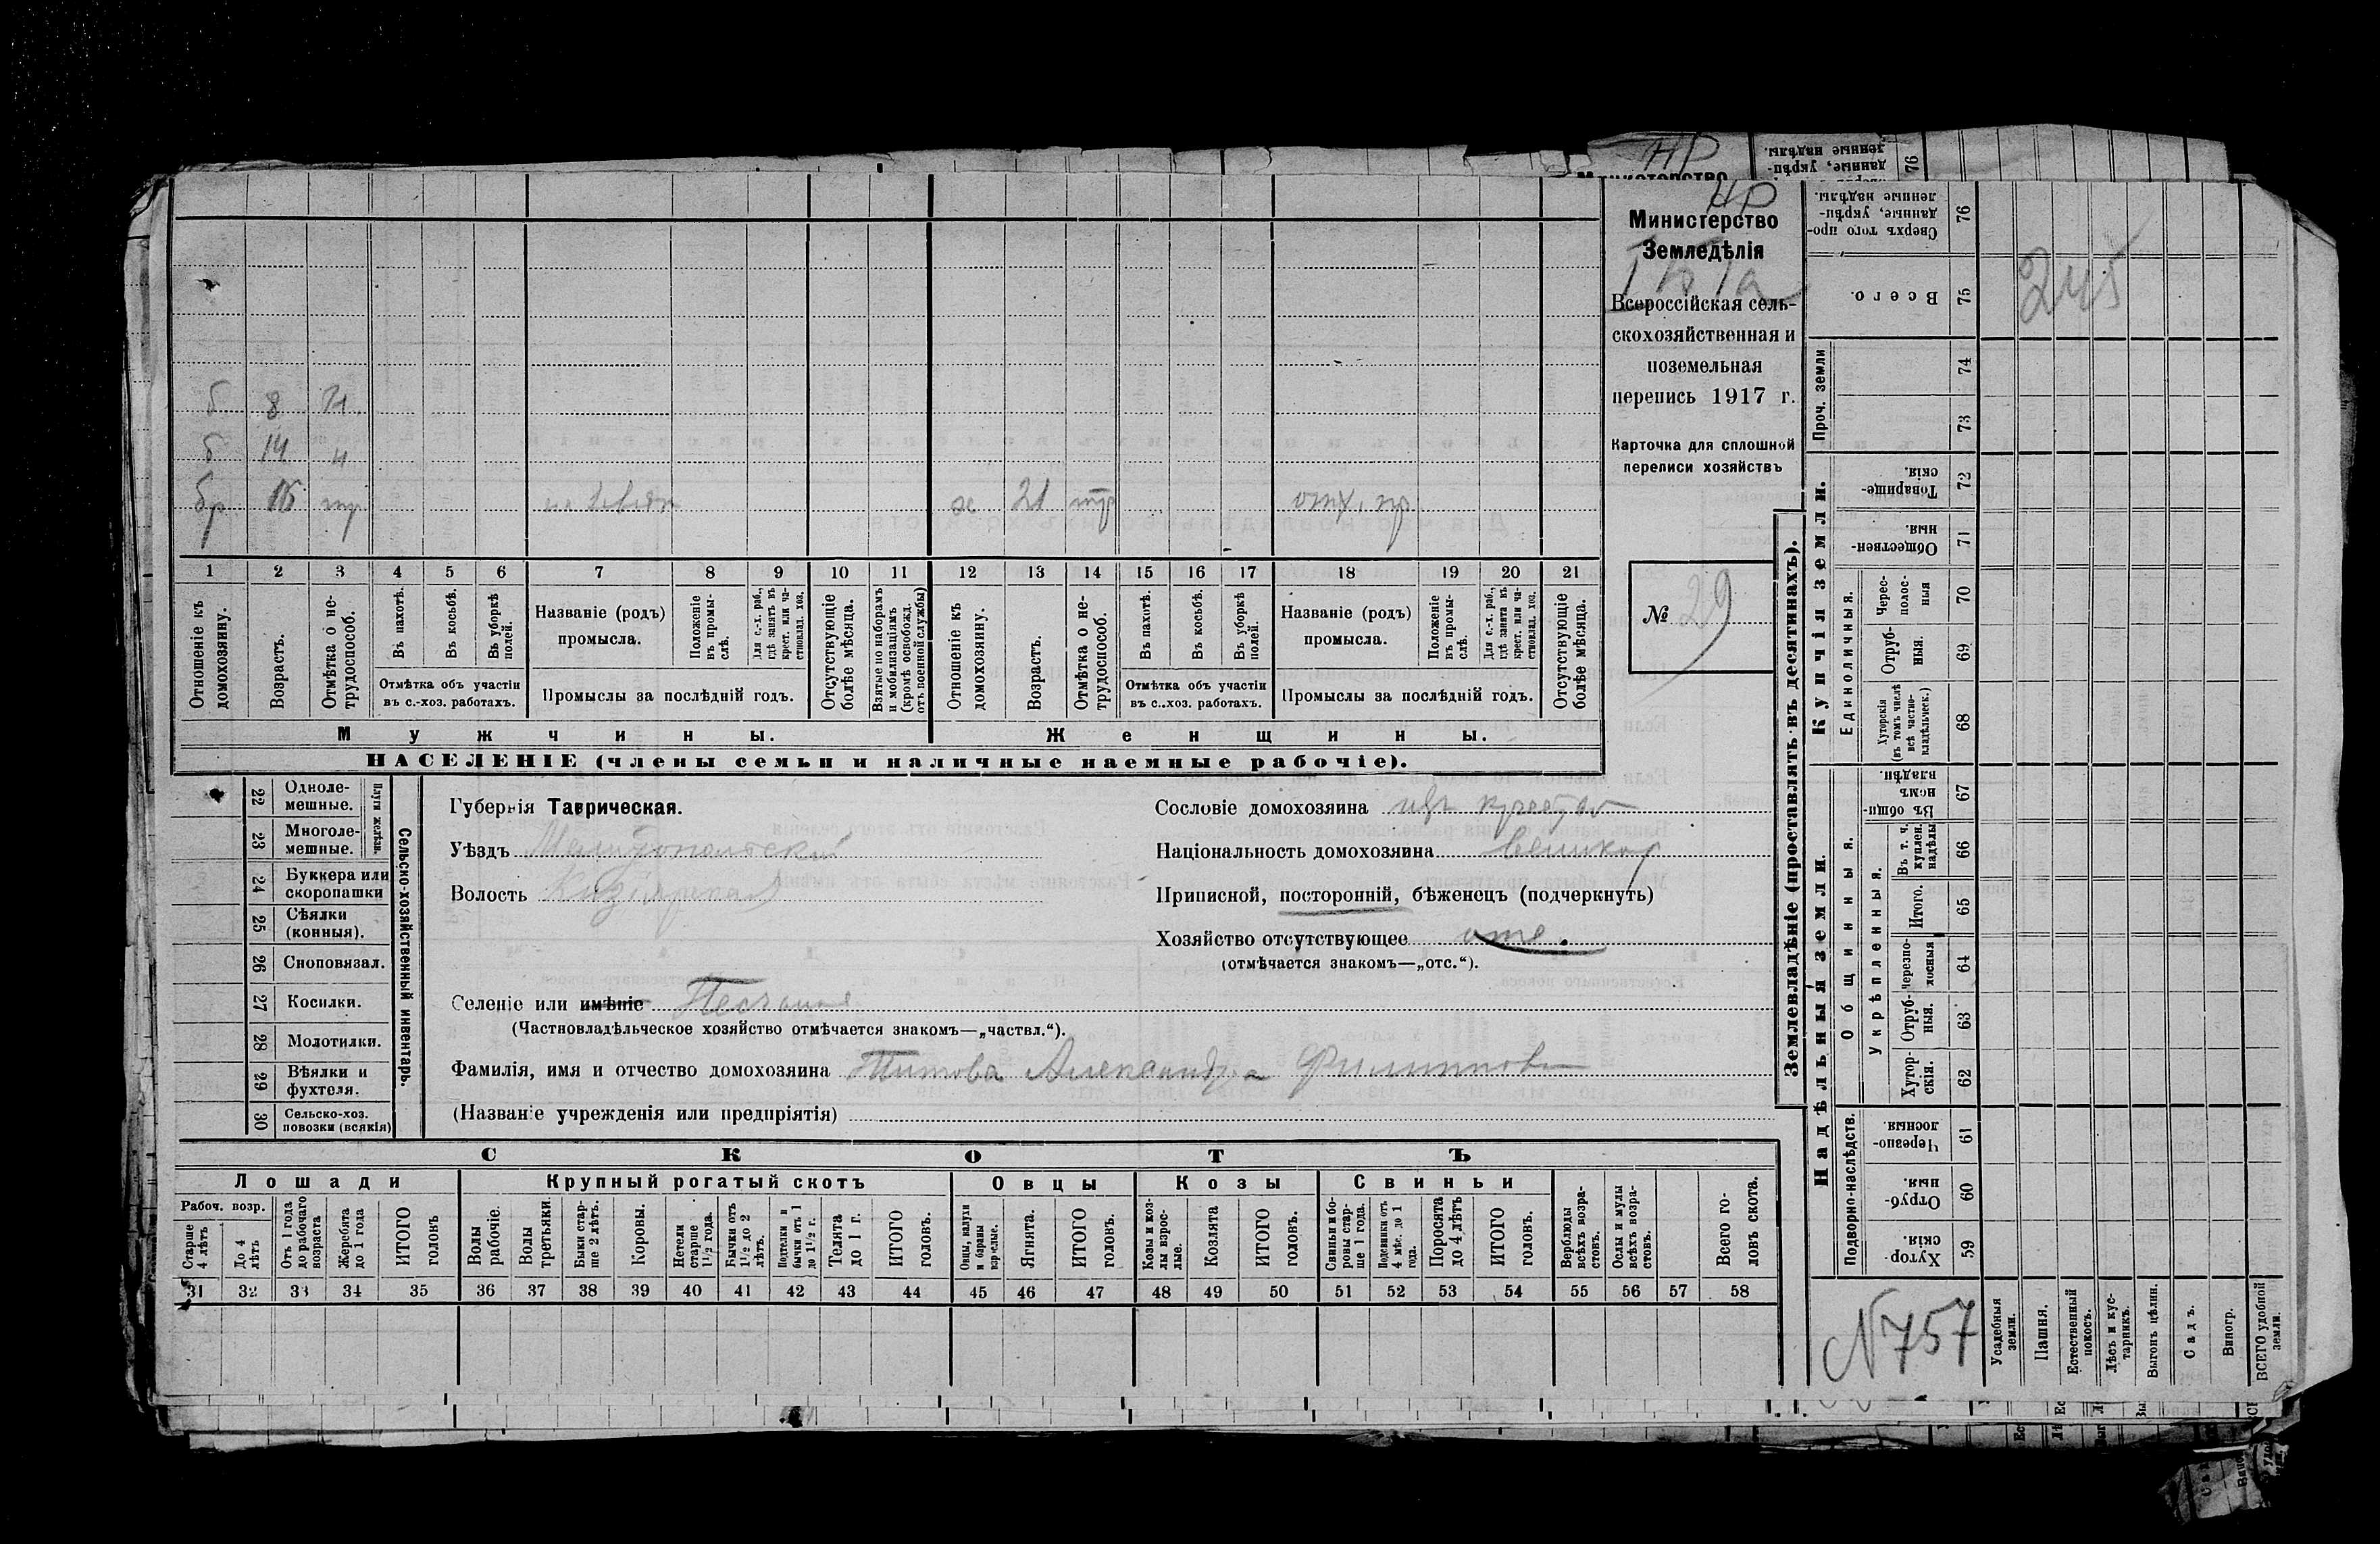 НР
Министерство
Земледѣлія
Всероссійская сель-
скохозяйственная и
поземельная
перепись 1917 г.
Карточка для сплошной
переписи хозяйствъ
№ 29
б 8 н
б 14 н
бр 16 тр
х 21 тр отх. пр
1 2 3 4 5 6 7 8 9 10 11 12 13 14 15 16 17 18 19 20 21
Отношеніе къ домохозяину.
Возрастъ.
Отмѣтка о не-трудоспособ.
Въ пахотѣ.
Въ косьбѣ.
Въ уборкѣ полей.
Отмѣтка объ участіи
въ с.-хоз. работахъ.
Названіе (родъ)
промысла.
Положеніе въ промы-слѣ.
Для с.-х. раб., гдѣ занятъ въ крест. или ча-стновлад. хоз.
Промыслы за послѣдній годъ.
Отсутствующіе болѣе мѣсяца.
Взятые по наборамъ и мобилизаціямъ (кромѣ освобожд. отъ военной службы)
Отношеніе къ домохозяину.
Возрастъ.
Отмѣтка о не-трудоспособ.
Въ пахотѣ.
Въ косьбѣ.
Въ уборкѣ полей.
Отмѣтка объ участіи
въ с.-хоз. работахъ.
Названіе (родъ)
промысла.
Положеніе въ промы-слѣ.
Для с.-х. раб., гдѣ занята въ крест. или ча-стновлад. хоз.
Промыслы за послѣдній годъ.
Отсутствующіе болѣе мѣсяца.
Мужчины. Женщины.
НАСЕЛЕНІЕ (члены семьи и наличные наемные рабочіе).
Сельско-хозяйственный инвентарь
Плуги желѣзн.
22 Одноле-мешные.
23 Многоле-мешные.
24 Буккера или скоропашки
25 Сѣялки (конныя).
26 Сноповязал.
27 Косилки.
28 Молотилки.
29 Вѣялки и фухтеля.
30 Сельско-хоз. повозки (всякія)
Губернія Таврическая.
Уѣздъ Мелитопольскій
Волость Кизіярская
Сословіе домохозяина изъ крест.
Національность домохозяина великор
Приписной, посторонній, бѣженецъ (подчеркнуть)
Хозяйство отсутствующее отс.
(отмѣчается знакомъ—„отс.“).
Селеніе или имѣніе Песчаное
(Частновладѣльческое хозяйство отмѣчается знакомъ—„частвл.“).
Фамилія, имя и отчество домохозяина Титова Александра Филиппов
(Названіе учрежденія или предпріятія)
СКОТЪ
Лошади Крупный рогатый скотъ Овцы Козы Свиньи
Рабоч. возр.
Старше 4 лѣтъ
До 4 лѣтъ
Отъ 1 года до рабочаго возраста
Жеребята до 1 года
ИТОГО головъ
Волы рабочіе.
Волы третьяки.
Быки стар-ше 2 лѣтъ.
Коровы.
Нетели старше 1½ года.
Бычки отъ 1½ до 2 лѣтъ.
Подтелки и бычки отъ 1 до 1½ г.
Телята до 1 г.
ИТОГО головъ.
Овцы, валухи и бараны взрослые.
Ягнята.
ИТОГО головъ.
Козы и коз-лы взрос-лые.
Козлята
ИТОГО головъ.
Свиньи и бо-ровы стар-ше 1 года.
Подсвинки отъ 4 мѣс. до 1 года.
Поросята до 4 лѣтъ
ИТОГО головъ.
Верблюды всѣхъ возра-стовъ.
Ослы и мулы всѣхъ возра-стовъ.
Всего го-ловъ скота.
31 32 33 34 35 36 37 38 39 40 41 42 43 44 45 46 47 48 49 50 51 52 53 54 55 56 57 58
Землевладѣніе (проставлять въ десятинахъ).
Сверхъ того про-данные, укрѣп-ленные надѣлы. 76
Всего. 75
245
Проч. земли 74 73
Купчія земли.
Товарище-скія. 72
Обществен-ныя. 71
Единоличныя.
Черес-полос-ныя 70
Отруб-ныя. 69
Хуторскія (въ томъ числѣ всѣ частно-владѣльческ.) 68
Надѣльныя земли.
Общинныя.
Въ общи-номъ владѣн. 67
Укрѣпленныя.
Въ т. ч. куплен. надѣлы 66
Итого. 65
Черезпо-лосныя 64
Отруб-ныя. 63
Хутор-скія. 62
Подворно-наслѣдств.
Черезпо-лосныя 61
Отруб-ныя. 60
Хутор-скія. 59
N757
Усадебныя земли.
Пашня.
Естественный покосъ.
Лѣсъ и кус-тарникъ.
Выгонъ цѣлин.
Садъ.
Виногр.
ВСЕГО удобной земли.